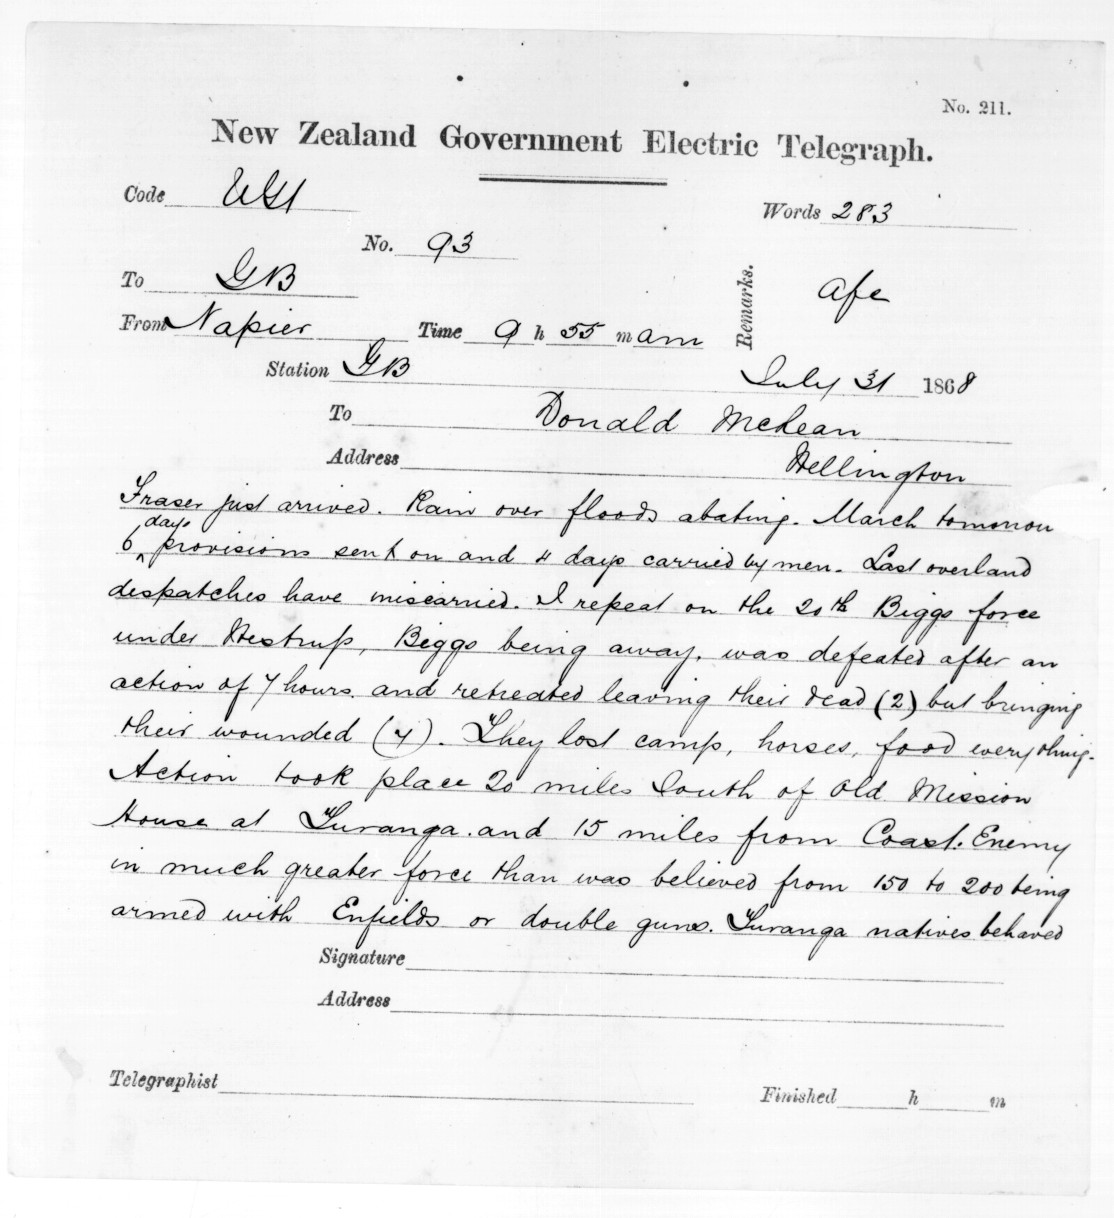 No. 211.
New Zealand Government Electric Telegraph.
Code
Words 283
No. 93
To GB
Remarks.
From Napier Time 9 h 55 m am
Station GB
July 31 1868
To Donald McLean
Address Wellington
Fraser just arrived. Rain over floods abating. March tomorrow
6 days provisions sent on and 4 days carried by men. Last overland
despatches have miscarried. I repeat on the 20th Biggs force
under Westrup, Biggs being away, was defeated after an
action of 7 hours and retreated leaving their dead (2) but bringing
their wounded (4). They lost camp, horses, food everything.
Action took place 20 miles South of Old Mission
House at Turanga. and 15 miles from Coast. Enemy
in much greater force than was believed from 150 to 200 being
armed with Enfields or double guns. Turanga natives behaved
Signature
Address
Telegraphist
Finished h m